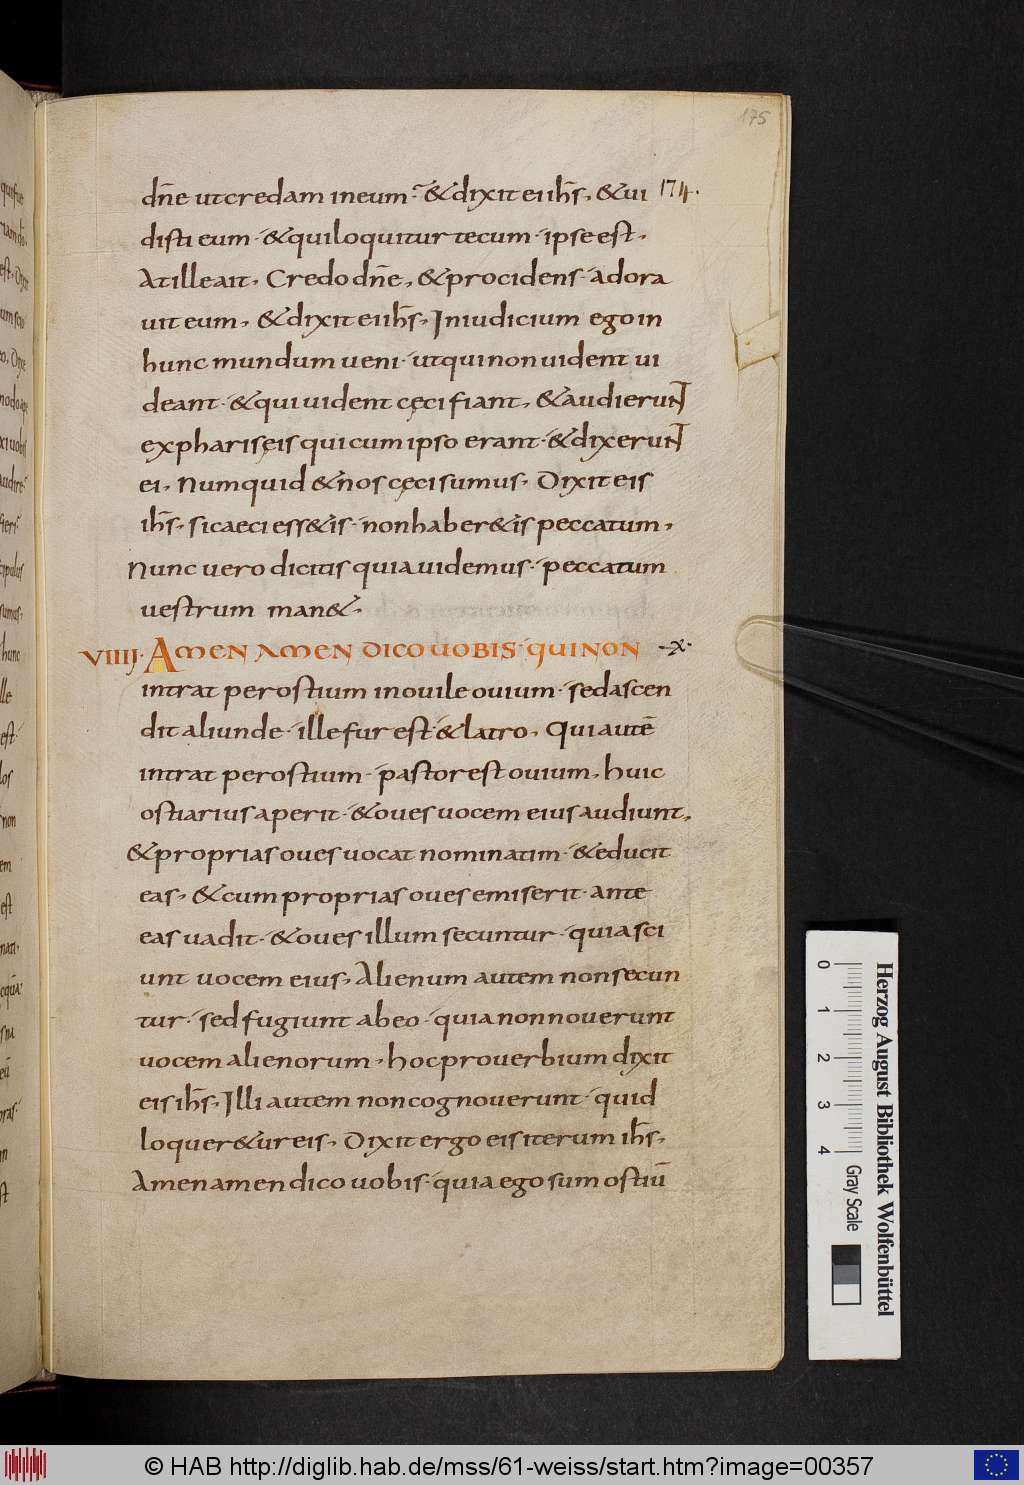 175
174.
dn̄e ut credam in eum· & dixit ei ih̄s, & ui
disti eum· & qui loquitur tecum· ipse est,
At ille ait, Credo dn̄e, & procidens· adora
uit eum, & dixit ei ih̄s, In iudicium ego in
hunc mundum ueni· ut qui non uident ui
deant· & qui uident cęci fiant, & audierunt
ex phariseis qui cum ipso erant· & dixerunt
ei, Numquid & nos cęci sumus, Dixit eis
ih̄s, si caeci ess&is· non haber&is peccatum,
Nunc uero dicitis quia uidemus· peccatum
uestrum man&,
VIIIJ· Amen amen dico uobis· qui non ·x·
intrat per ostium in ouile ouium· sed ascen
dit aliunde· ille fur est & latro, Qui autē
intrat per ostium· pastor est ouium, huic
ostiarius aperit· & oues uocem eius audiunt,
& proprias oues uocat nominatim· & educit
eas, & cum proprias oues emiserit· ante
eas uadit· & oues illum secuntur· quia sci
unt uocem eius, Alienum autem non secun
tur· sed fugiunt ab eo· quia non nouerunt
uocem alienorum, hoc prouerbium dixit
eis ih̄s, Illi autem non cognouerunt· quid
loquer&ur eis, Dixit ergo eis iterum ih̄s,
Amen amen dico uobis· quia ego sum ostiū
0 1 2 3 4
Gray Scale
Herzog August Bibliothek Wolfenbüttel
© HAB http://diglib.hab.de/mss/61-weiss/start.htm?image=00357